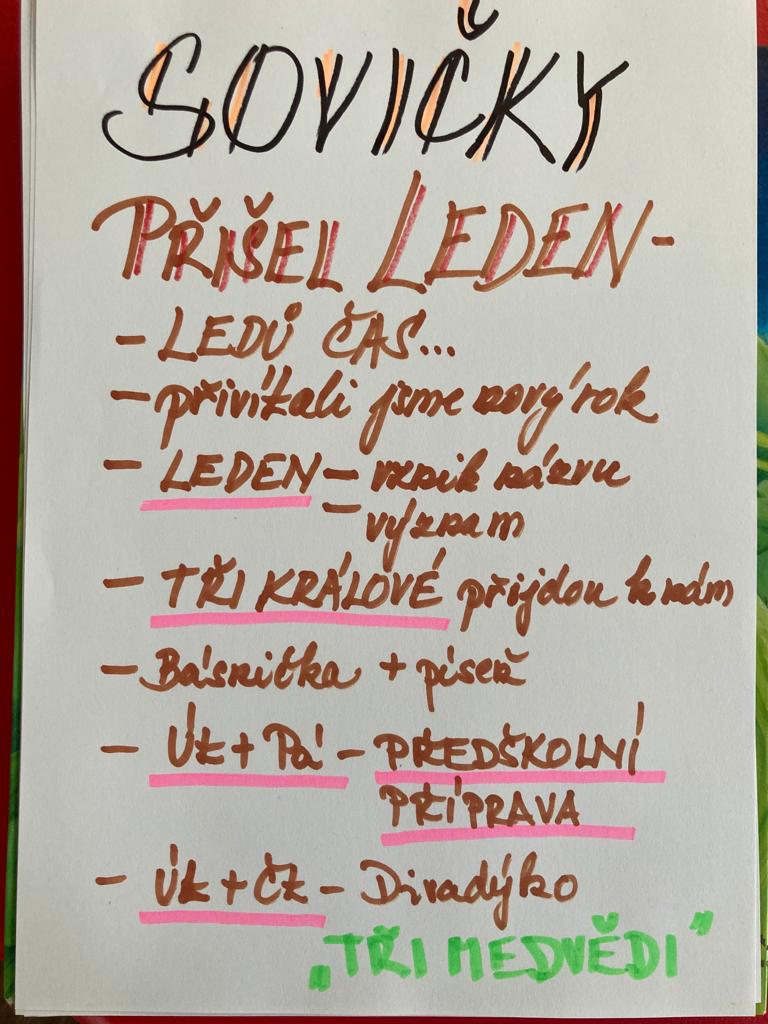 SOVIČKY
PŘIŠEL LEDEN-
- LEDŮ ČAS...
- přivítali jsme nový rok
- LEDEN - vznik názvu
- význam
- TŘI KRÁLOVÉ přijdou k nám
- Básnička + píseň
- Út + Pá - PŘEDŠKOLNÍ
PŘÍPRAVA
- Út + Čt - Divadýlko
„TŘI MEDVĚDI"